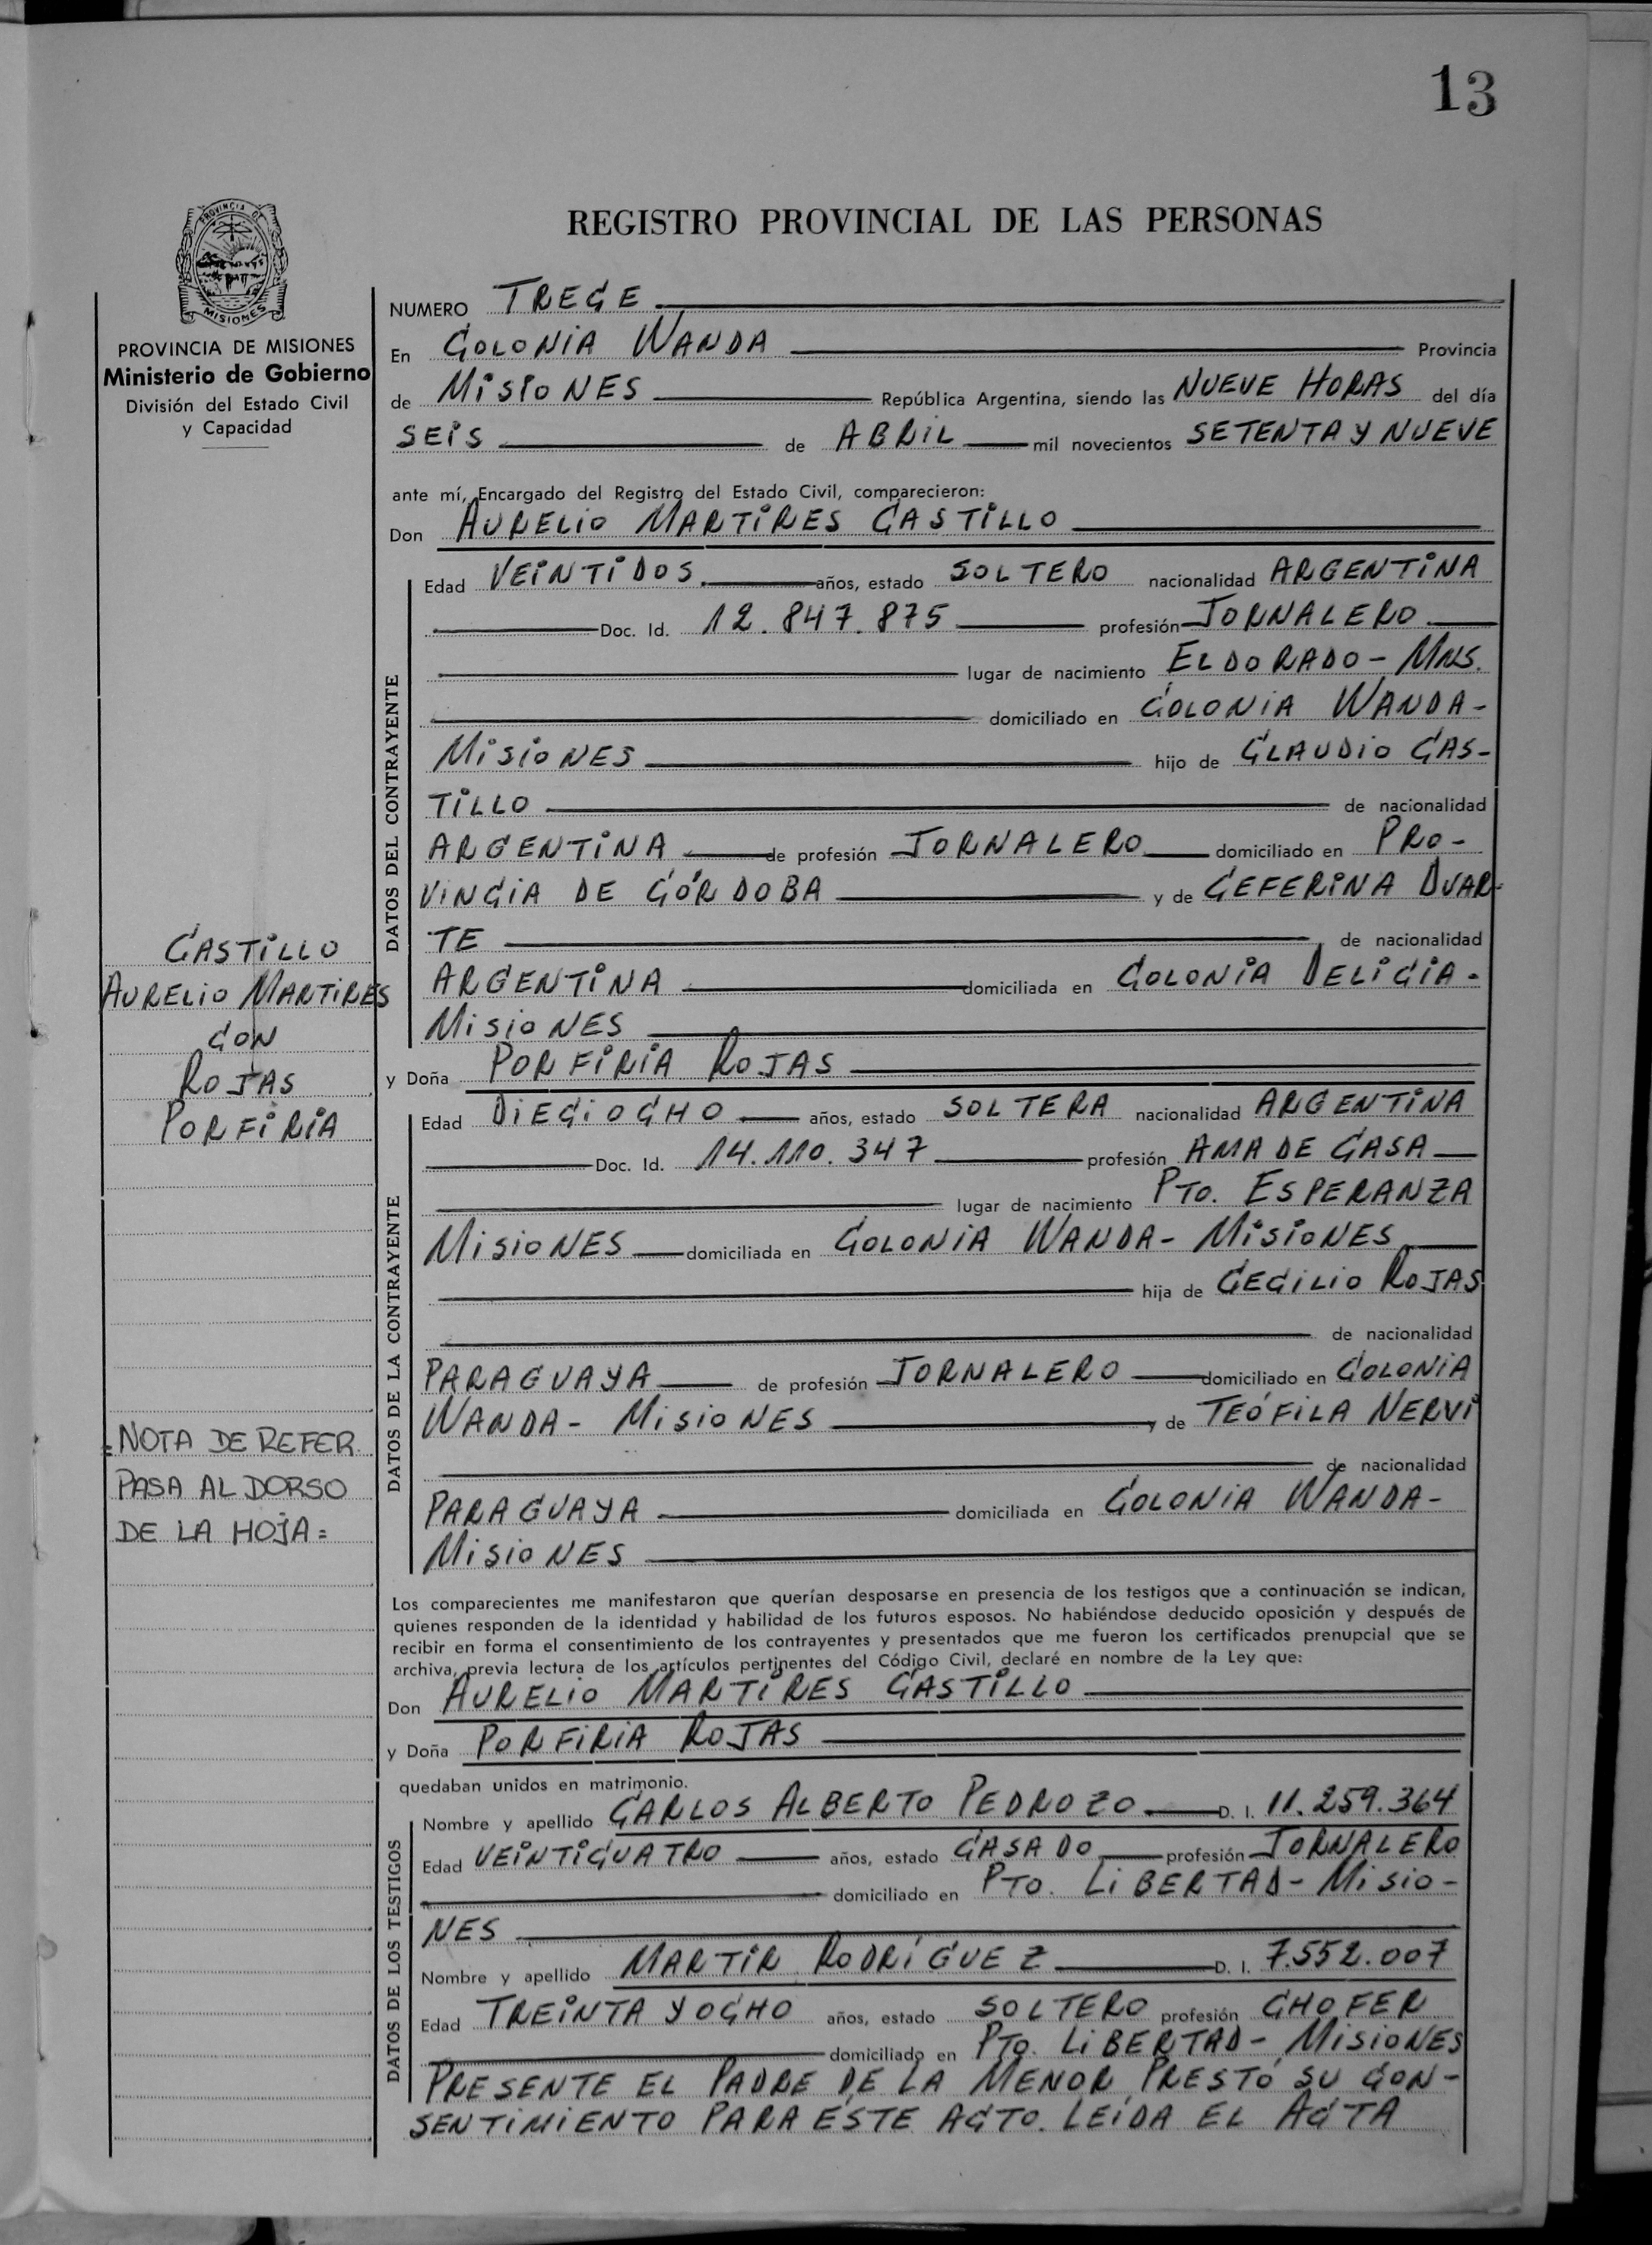 13
REGISTRO PROVINCIAL DE LAS PERSONAS
PROVINCIA DE MISIONES
PROVINCIA DE MISIONES
Ministerio de Gobierno
División del Estado Civil
y Capacidad
NUMERO TRECE
En COLONIA WANDA Provincia
de MISIONES República Argentina, siendo las NUEVE HORAS del día
SEIS de ABRIL mil novecientos SETENTA Y NUEVE
ante mí, Encargado del Registro del Estado Civil, comparecieron:
Don AURELIO MARTIRES CASTILLO
DATOS DEL CONTRAYENTE
Edad VEINTIDOS años, estado SOLTERO nacionalidad ARGENTINA
Doc. Id. 12.847.875 profesión JORNALERO
lugar de nacimiento ELDORADO - MNS.
domiciliado en COLONIA WANDA-
MISIONES hijo de CLAUDIO CAS-
TILLO de nacionalidad
ARGENTINA de profesión JORNALERO domiciliado en PRO-
VINCIA DE CÓRDOBA y de CEFERINA DUAR-
TE de nacionalidad
ARGENTINA domiciliada en COLONIA DELICIA-
MISIONES
y Doña PORFIRIA ROJAS
DATOS DE LA CONTRAYENTE
Edad DIECIOCHO años, estado SOLTERA nacionalidad ARGENTINA
Doc. Id. 14.110.347 profesión AMA DE CASA
lugar de nacimiento PTO. ESPERANZA
MISIONES domiciliada en COLONIA WANDA- MISIONES
hija de CECILIO ROJAS
de nacionalidad
PARAGUAYA de profesión JORNALERO domiciliado en COLONIA
WANDA- MISIONES y de TEÓFILA NERVI
de nacionalidad
PARAGUAYA domiciliada en COLONIA WANDA-
MISIONES
CASTILLO
AURELIO MARTIRES
CON
ROJAS
PORFIRIA
=NOTA DE REFER.
PASA AL DORSO
DE LA HOJA=
Los comparecientes me manifestaron que querían desposarse en presencia de los testigos que a continuación se indican,
quienes responden de la identidad y habilidad de los futuros esposos. No habiéndose deducido oposición y después de
recibir en forma el consentimiento de los contrayentes y presentados que me fueron los certificados prenupcial que se
archiva, previa lectura de los artículos pertinentes del Código Civil, declaré en nombre de la Ley que:
Don AURELIO MARTIRES CASTILLO
y Doña PORFIRIA ROJAS
quedaban unidos en matrimonio.
DATOS DE LOS TESTIGOS
Nombre y apellido CARLOS ALBERTO PEDROZO D. I. 11.259.364
Edad VEINTICUATRO años, estado CASADO profesión JORNALERO
domiciliado en PTO. LIBERTAD- MISIO-
NES
Nombre y apellido MARTIR RODRÍGUEZ D. I. 7.552.007
Edad TREINTA Y OCHO años, estado SOLTERO profesión CHOFER
domiciliado en PTO. LIBERTAD- MISIONES
PRESENTE EL PADRE DE LA MENOR PRESTÓ SU CON-
SENTIMIENTO PARA ESTE ACTO. LEÍDA EL ACTA